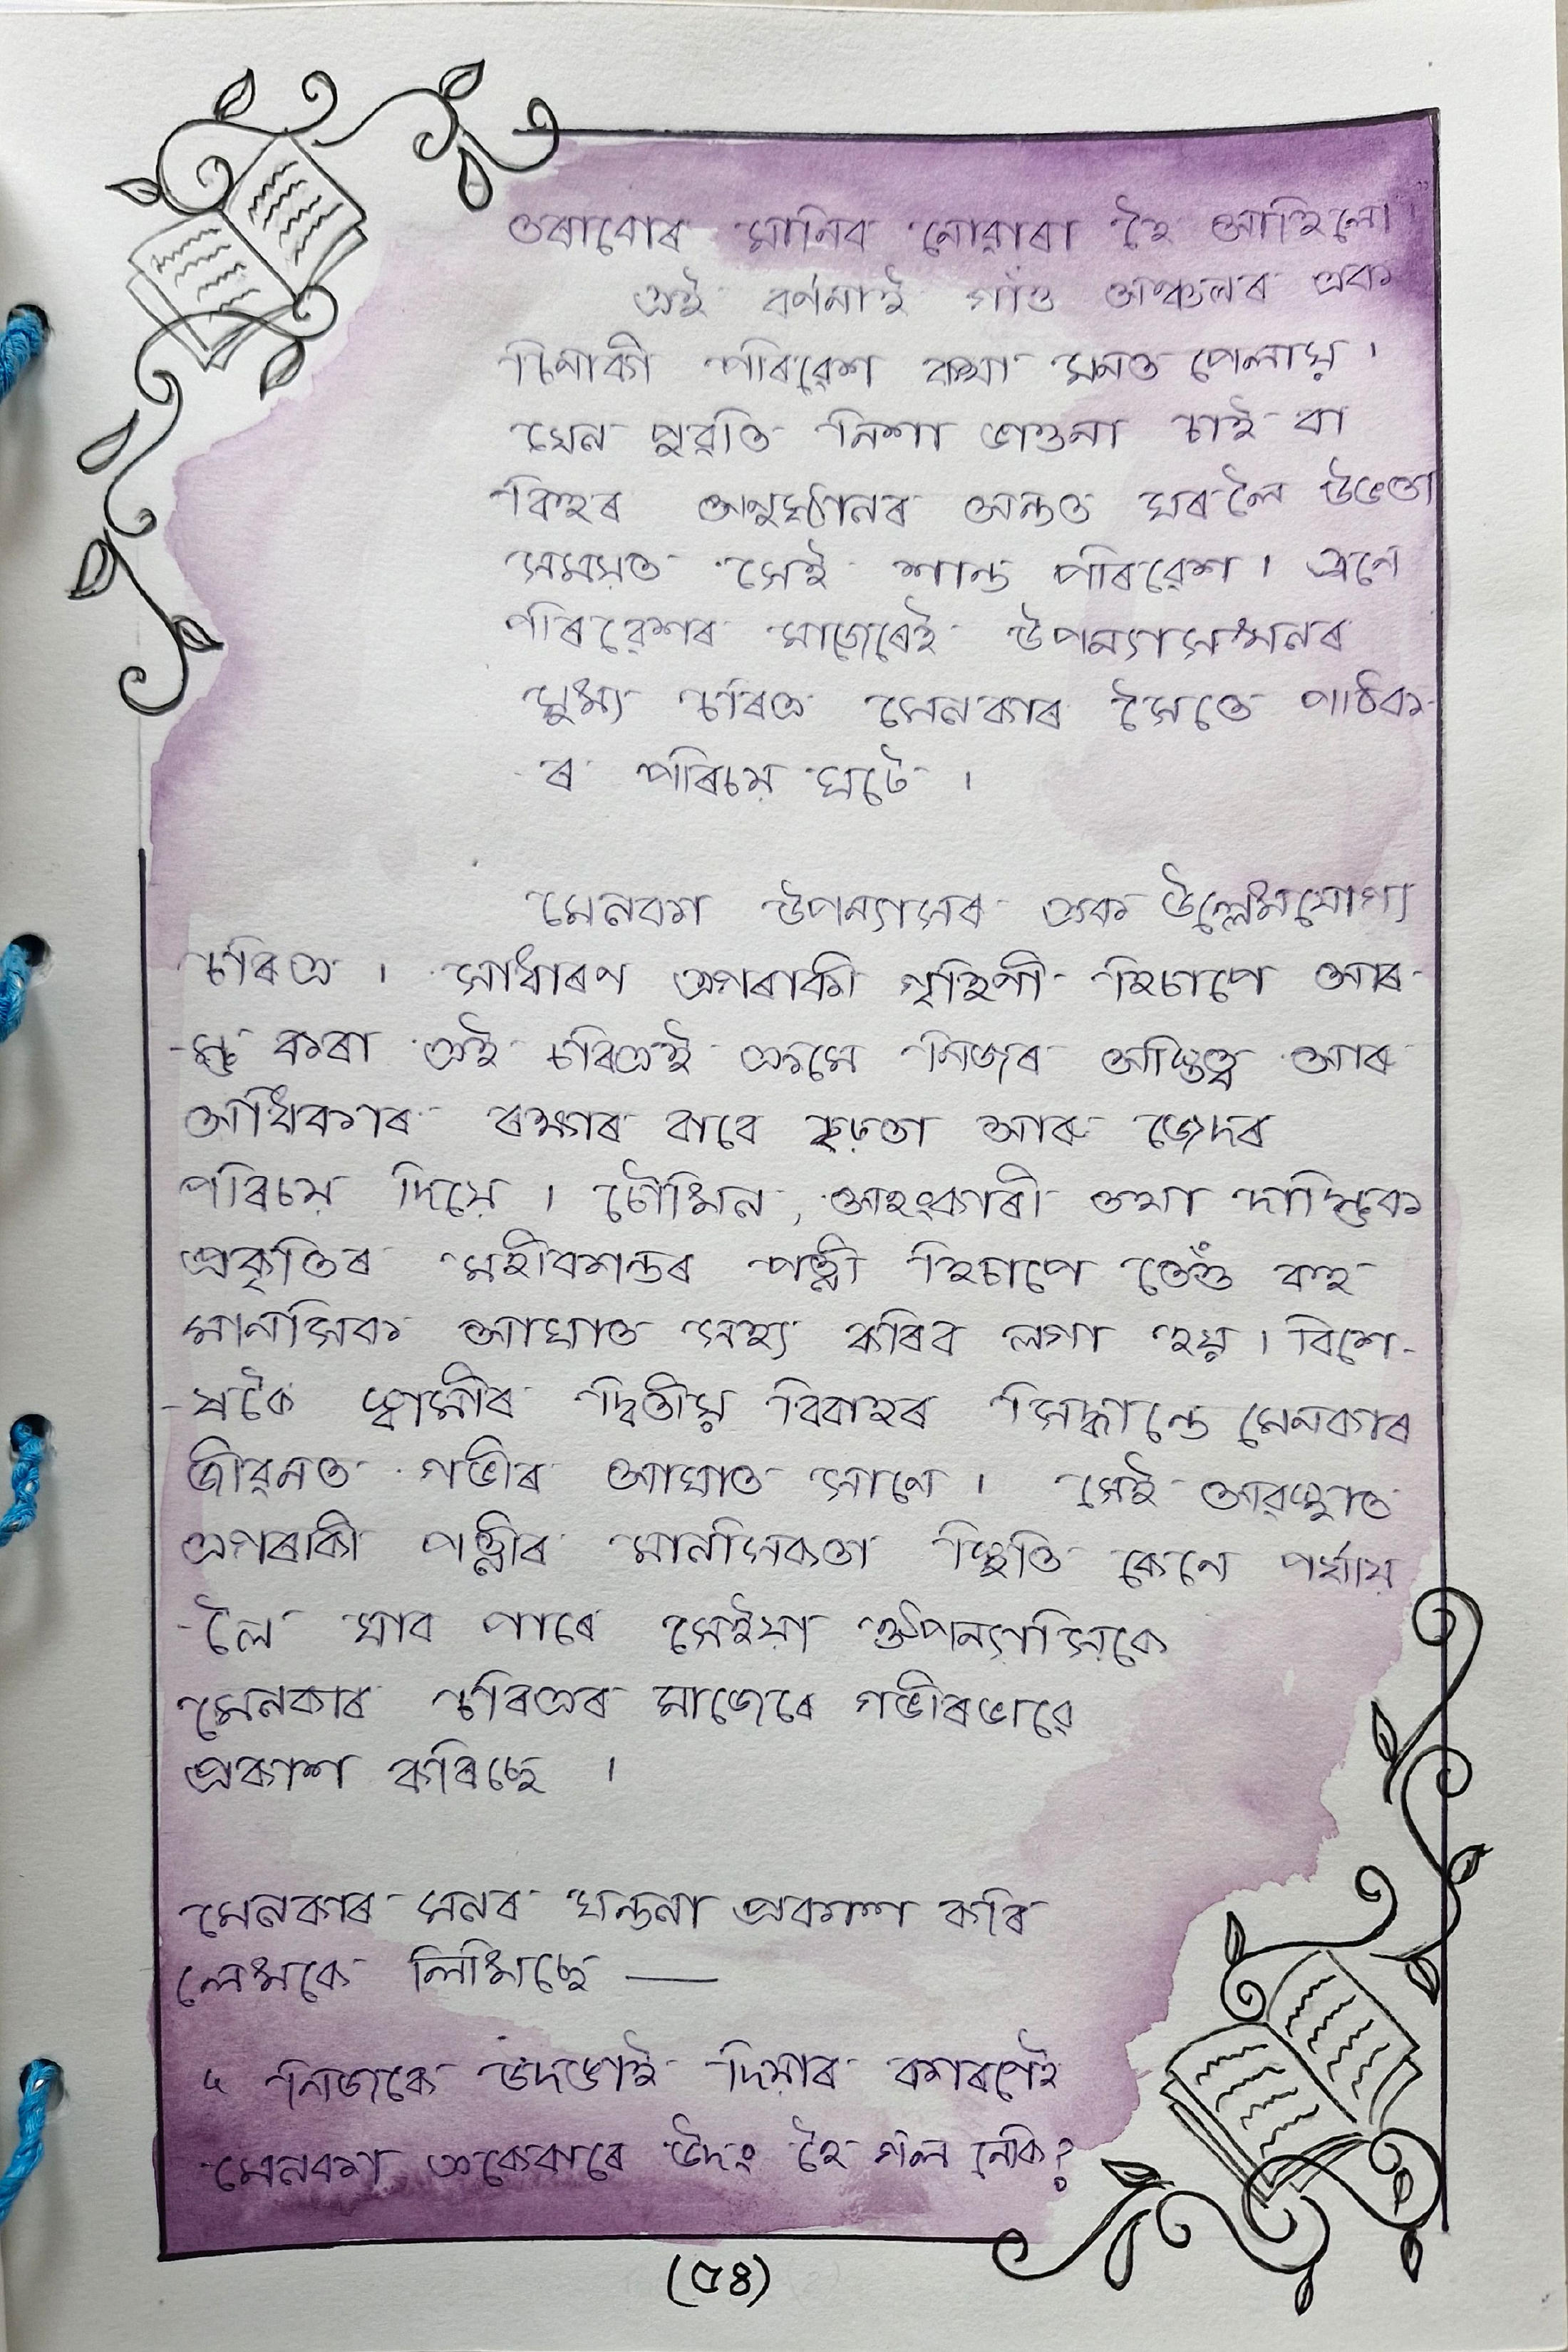 তৰাবোৰ মানিব নোৱাৰা হৈ আহিলো।"
এই বৰ্ণনাই গাঁও অঞ্চলৰ এক
চিনাকী পৰিৱেশ কথা মনত পেলায়।
যেন পুৱতি নিশা ভাওনা চাই বা
বিহুৰ অনুষ্ঠানৰ অন্তত ঘৰলৈ উভতা
সময়ত সেই শান্ত পৰিৱেশ। এনে
পৰিৱেশৰ মাজেৰেই উপন্যাসখনৰ
মুখ্য চৰিত্ৰ মেনকাৰ সৈতে পাঠক-
ৰ পৰিচয় ঘটে।
মেনকা উপন্যাসৰ এক উল্লেখযোগ্য
চৰিত্ৰ। সাধাৰণ এগৰাকী গৃহিণী হিচাপে আৰ-
-ম্ভ কৰা এই চৰিত্ৰই ক্ৰমে নিজৰ অস্তিত্ব আৰু
অধিকাৰ ৰক্ষাৰ বাবে দৃঢ়তা আৰু জেদৰ
পৰিচয় দিয়ে। চৌখিন, অহংকাৰী তথা দাম্ভিক
প্ৰকৃতিৰ মহীকান্তৰ পত্নী হিচাপে তেওঁ বহু
মানসিক আঘাত সহ্য কৰিব লগা হয়। বিশে-
-ষকৈ স্বামীৰ দ্বিতীয় বিবাহৰ সিদ্ধান্তে মেনকাৰ
জীৱনত গভীৰ আঘাত সানে। সেই অৱস্থাত
এগৰাকী পত্নীৰ মানসিকতা স্থিতি কেনে পৰ্যায়
-লৈ যাব পাৰে সেইয়া ঔপন্যাসিকে
মেনকাৰ চৰিত্ৰৰ মাজেৰে গভীৰভাৱে
প্ৰকাশ কৰিছে।
মেনকাৰ মনৰ যন্ত্ৰনা প্ৰকাশ কৰি
লেখকে লিখিছে —
" নিজকে উদঙাই দিয়াৰ কাৰণেই
মেনকা একেবাৰে উদং হৈ গ'ল নেকি?
(৫৪)